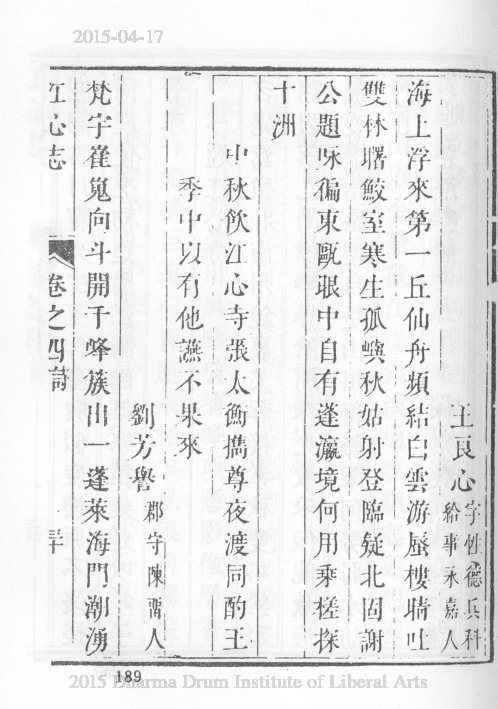 2015-04-17
王良心字性德兵科給事永嘉人
海上浮來第一丘仙舟頻結白雲游蜃樓晴吐
雙林曙鮫室寒生孤嶼秋姑射登臨疑北固謝
公題咏徧東甌眼中自有蓬瀛境何用乘槎探
十洲
中秋飲江心寺張太衡攜尊夜渡同酌王
季中以有他讌不果來
劉芳譽郡守陳畱人
梵宇崔嵬向斗開千峰簇出一蓬萊海門潮湧
江心志 卷之四詩
189
2015 Dharma Drum Institute of Liberal Arts